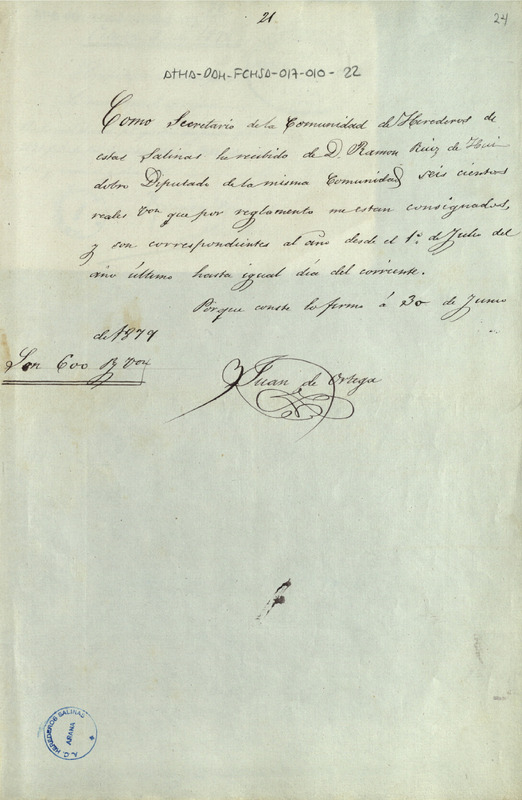 21
24
ATHA-DAH-FCHSA-017-010-22
Como Secretario de la Comunidad de Herederos de
estas Salinas he recibido de D. Ramon Ruiz de Hui
dobro Diputado de la misma Comunidad seis cientos
reales von que por reglamento me estan consignados,
y son correspondientes al año desde el 1º de Julio del
año último hasta igual dia del corriente.
Porque conste lo firmo á 30 de Junio
de 1879
Son 600 R von
Juan de Ortega
A.C. HEREDEROS SALINAS
AÑANA